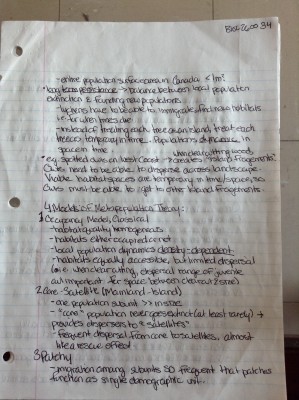 BIOL 2600 34
-entire population surface area in Canada < 1m²
• long term persistence → balance between local population
extinction & founding new populations.
-lichens have to be able to immigrate, find new habitats
i.e. for when trees die
-instead of treating each tree as an island, treat each
tree as temporary in time. Populations in
space in time.
when clearcutting wood,
• e.g. spotted owls on West Coast - creates "island fragments"
Owls need to be able to disperse across landscape.
Viable habitat spaces are temporary in time/space, so
Owls must be able to get to other island fragments.
4 Models of Metapopulation Theory:
1 Occupancy Model, Classical
-habitat quality homogeneous
-habitats either occupied or not
-local population dynamics density-dependent
-habitats equally accessible, but limited dispersal
(i.e. when clearcutting, dispersal range of juvenile
owl important for space between clearcut & size)
2 Core-Satellite (Mainland-Island)
-one population subunit >> in size
- "core" population never goes extinct (at least rarely) →
provides dispersers to "satellites"
-frequent dispersal from core to satellites, almost
like a rescue effect
3 Patchy
-migration among subunits SO frequent that patches
function as single demographic unit.